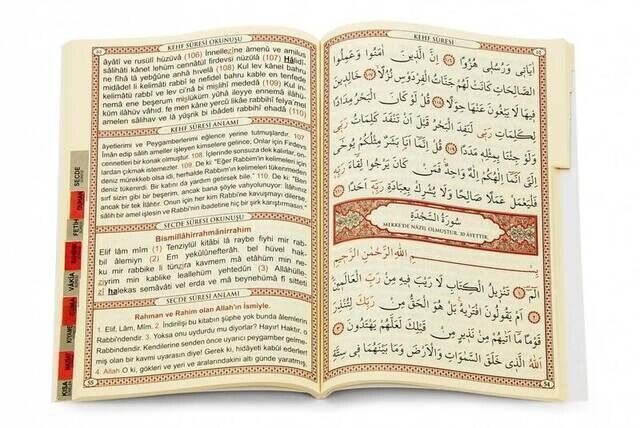 KEHF SÛRESİ OKUNUŞU
âyâtî ve rusulî hüzüvâ (106) İnnellezîne âmenû ve amilus
sâlihâti kânet lehüm cennâtül firdevsi nüzülâ (107) Hâlidî-
(108) Kul lev kânel bahru
midâdel li kelimâti rabbî le nefidel bahru kable en tenfede
kelimâtü rabbî ve lev ci'nâ bi mislihî mededâ (109) Kul in-
nemâ ene beşerum mislüküm yûhâ ileyye ennemâ ilâhü-
küm ilâhüv vâhid, fe men kâne yercû likâe rabbihî felya'mel
amelen sâlihav ve lâ yüşrik bi ibâdeti rabbihî ehadâ (110)
KEHF SÛRESİ ANLAMI
âyetlerimi ve Peygamberlerimi eğlence yerine tutmuşlardır. 107
İman edip sâlih ameller işleyenlere gelince; Onlar için Firdevs
cennetleri bir konak olmuştur. 108. İçlerinde sonsuza dek kalırlar, on-
lardan çıkmak istemezler. 109. De ki: "Eğer Rabbim'in kelimeleri için
deniz mürekkeb olsa idi, herhalde Rabbim'in kelimeleri tükenmeden
deniz tükenirdi. Bir katını da yardım getirsek bile." 110. De ki: "Ben
sırf sizin gibi bir beşerim, ancak bana şöyle vahyolunuyor: İlâhınız
ancak bir tek İlâhtır. Onun için her kim Rabbi'ne kavuşmayı dilerse,
sâlih bir amel işlesin ve Rabbi'nin ibadetine hiç bir şirk karıştırmasın."
SECDE SÛRESİ OKUNUŞU
Bismillâhirrahmânirrahîm
Elif lâm mîm (1) Tenzîylül kitâbi lâ raybe fîhi mir rab-
bil âlemîyn (2) Em yekûlûnefterâh, bel hüvel hak-
ku mir rabbike li tünzira kavmem mâ etâhüm min ne-
zîyrim min kablike leallehüm yehtedûn (3) Allâhülle-
zî halekas semâvâti vel erda ve mâ beynehümâ fî sitteti
SECDE SÛRESİ ANLAMI
Rahman ve Rahim olan Allah'ın İsmiyle.
1. Elif, Lâm, Mîm. 2. İndirilişi bu kitabın şüphe yok bunda âlemlerin
Rabbi'ndendir. 3. Yoksa onu uydurdu mu diyorlar? Hayır! Haktır, o
Rabbi'ndendir. Kendilerine senden önce uyarıcı peygamber gelme-
miş olan bir kavmi uyarasın diye! Gerek ki, hidâyeti kabûl ederler!
4. Allah O ki, gökleri ve yeri ve aralarındakini altı günde yaratmış,
KEHF SÛRESİ
اٰيَاتٖي وَرُسُلٖي هُزُوًا ﴿١٠٦﴾ اِنَّ الَّذٖينَ اٰمَنُوا وَعَمِلُوا
الصَّالِحَاتِ كَانَتْ لَهُمْ جَنَّاتُ الْفِرْدَوْسِ نُزُلًا ﴿١٠٧﴾ خَالِدٖينَ
فٖيهَا لَا يَبْغُونَ عَنْهَا حِوَلًا ﴿١٠٨﴾ قُلْ لَوْ كَانَ الْبَحْرُ مِدَادًا
لِكَلِمَاتِ رَبّٖي لَنَفِدَ الْبَحْرُ قَبْلَ اَنْ تَنْفَدَ كَلِمَاتُ رَبّٖي
وَلَوْ جِئْنَا بِمِثْلِهٖ مَدَدًا ﴿١٠٩﴾ قُلْ اِنَّمَا اَنَا بَشَرٌ مِثْلُكُمْ يُوحٰى
اِلَيَّ اَنَّمَا اِلٰهُكُمْ اِلٰهٌ وَاحِدٌ فَمَنْ كَانَ يَرْجُوا لِقَاءَ رَبِّهٖ
فَلْيَعْمَلْ عَمَلًا صَالِحًا وَلَا يُشْرِكْ بِعِبَادَةِ رَبِّهٖ اَحَدًا ﴿١١٠﴾
سُورَةُ السَّجْدَةِ
MEKKE'DE NÂZİL OLMUŞTUR. 30 ÂYETTİR.
بِسْمِ اللّٰهِ الرَّحْمٰنِ الرَّحٖيمِ
الٓمٓ ﴿١﴾ تَنْزٖيلُ الْكِتَابِ لَا رَيْبَ فٖيهِ مِنْ رَبِّ الْعَالَمٖينَ
﴿٢﴾ اَمْ يَقُولُونَ افْتَرٰيهُ بَلْ هُوَ الْحَقُّ مِنْ رَبِّكَ لِتُنْذِرَ
قَوْمًا مَا اَتٰيهُمْ مِنْ نَذٖيرٍ مِنْ قَبْلِكَ لَعَلَّهُمْ يَهْتَدُونَ ﴿٣﴾
اَللّٰهُ الَّذٖي خَلَقَ السَّمٰوَاتِ وَالْاَرْضَ وَمَا بَيْنَهُمَا فٖي سِتَّةِ
SECDE
DUHAN
FETİH
VAKIA
KIYAME